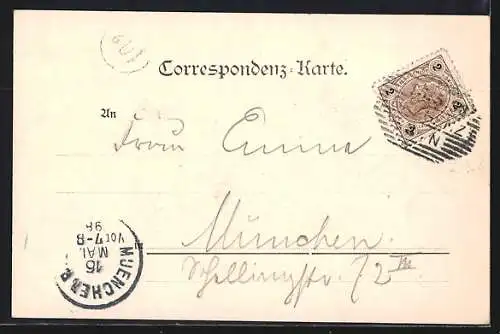 Correspondenz-Karte.
An
Frau Emma
München.
Schellingstr. 72 III
MUENCHEN
16
MAI.
Vor 7-8
98
2
2
2
2